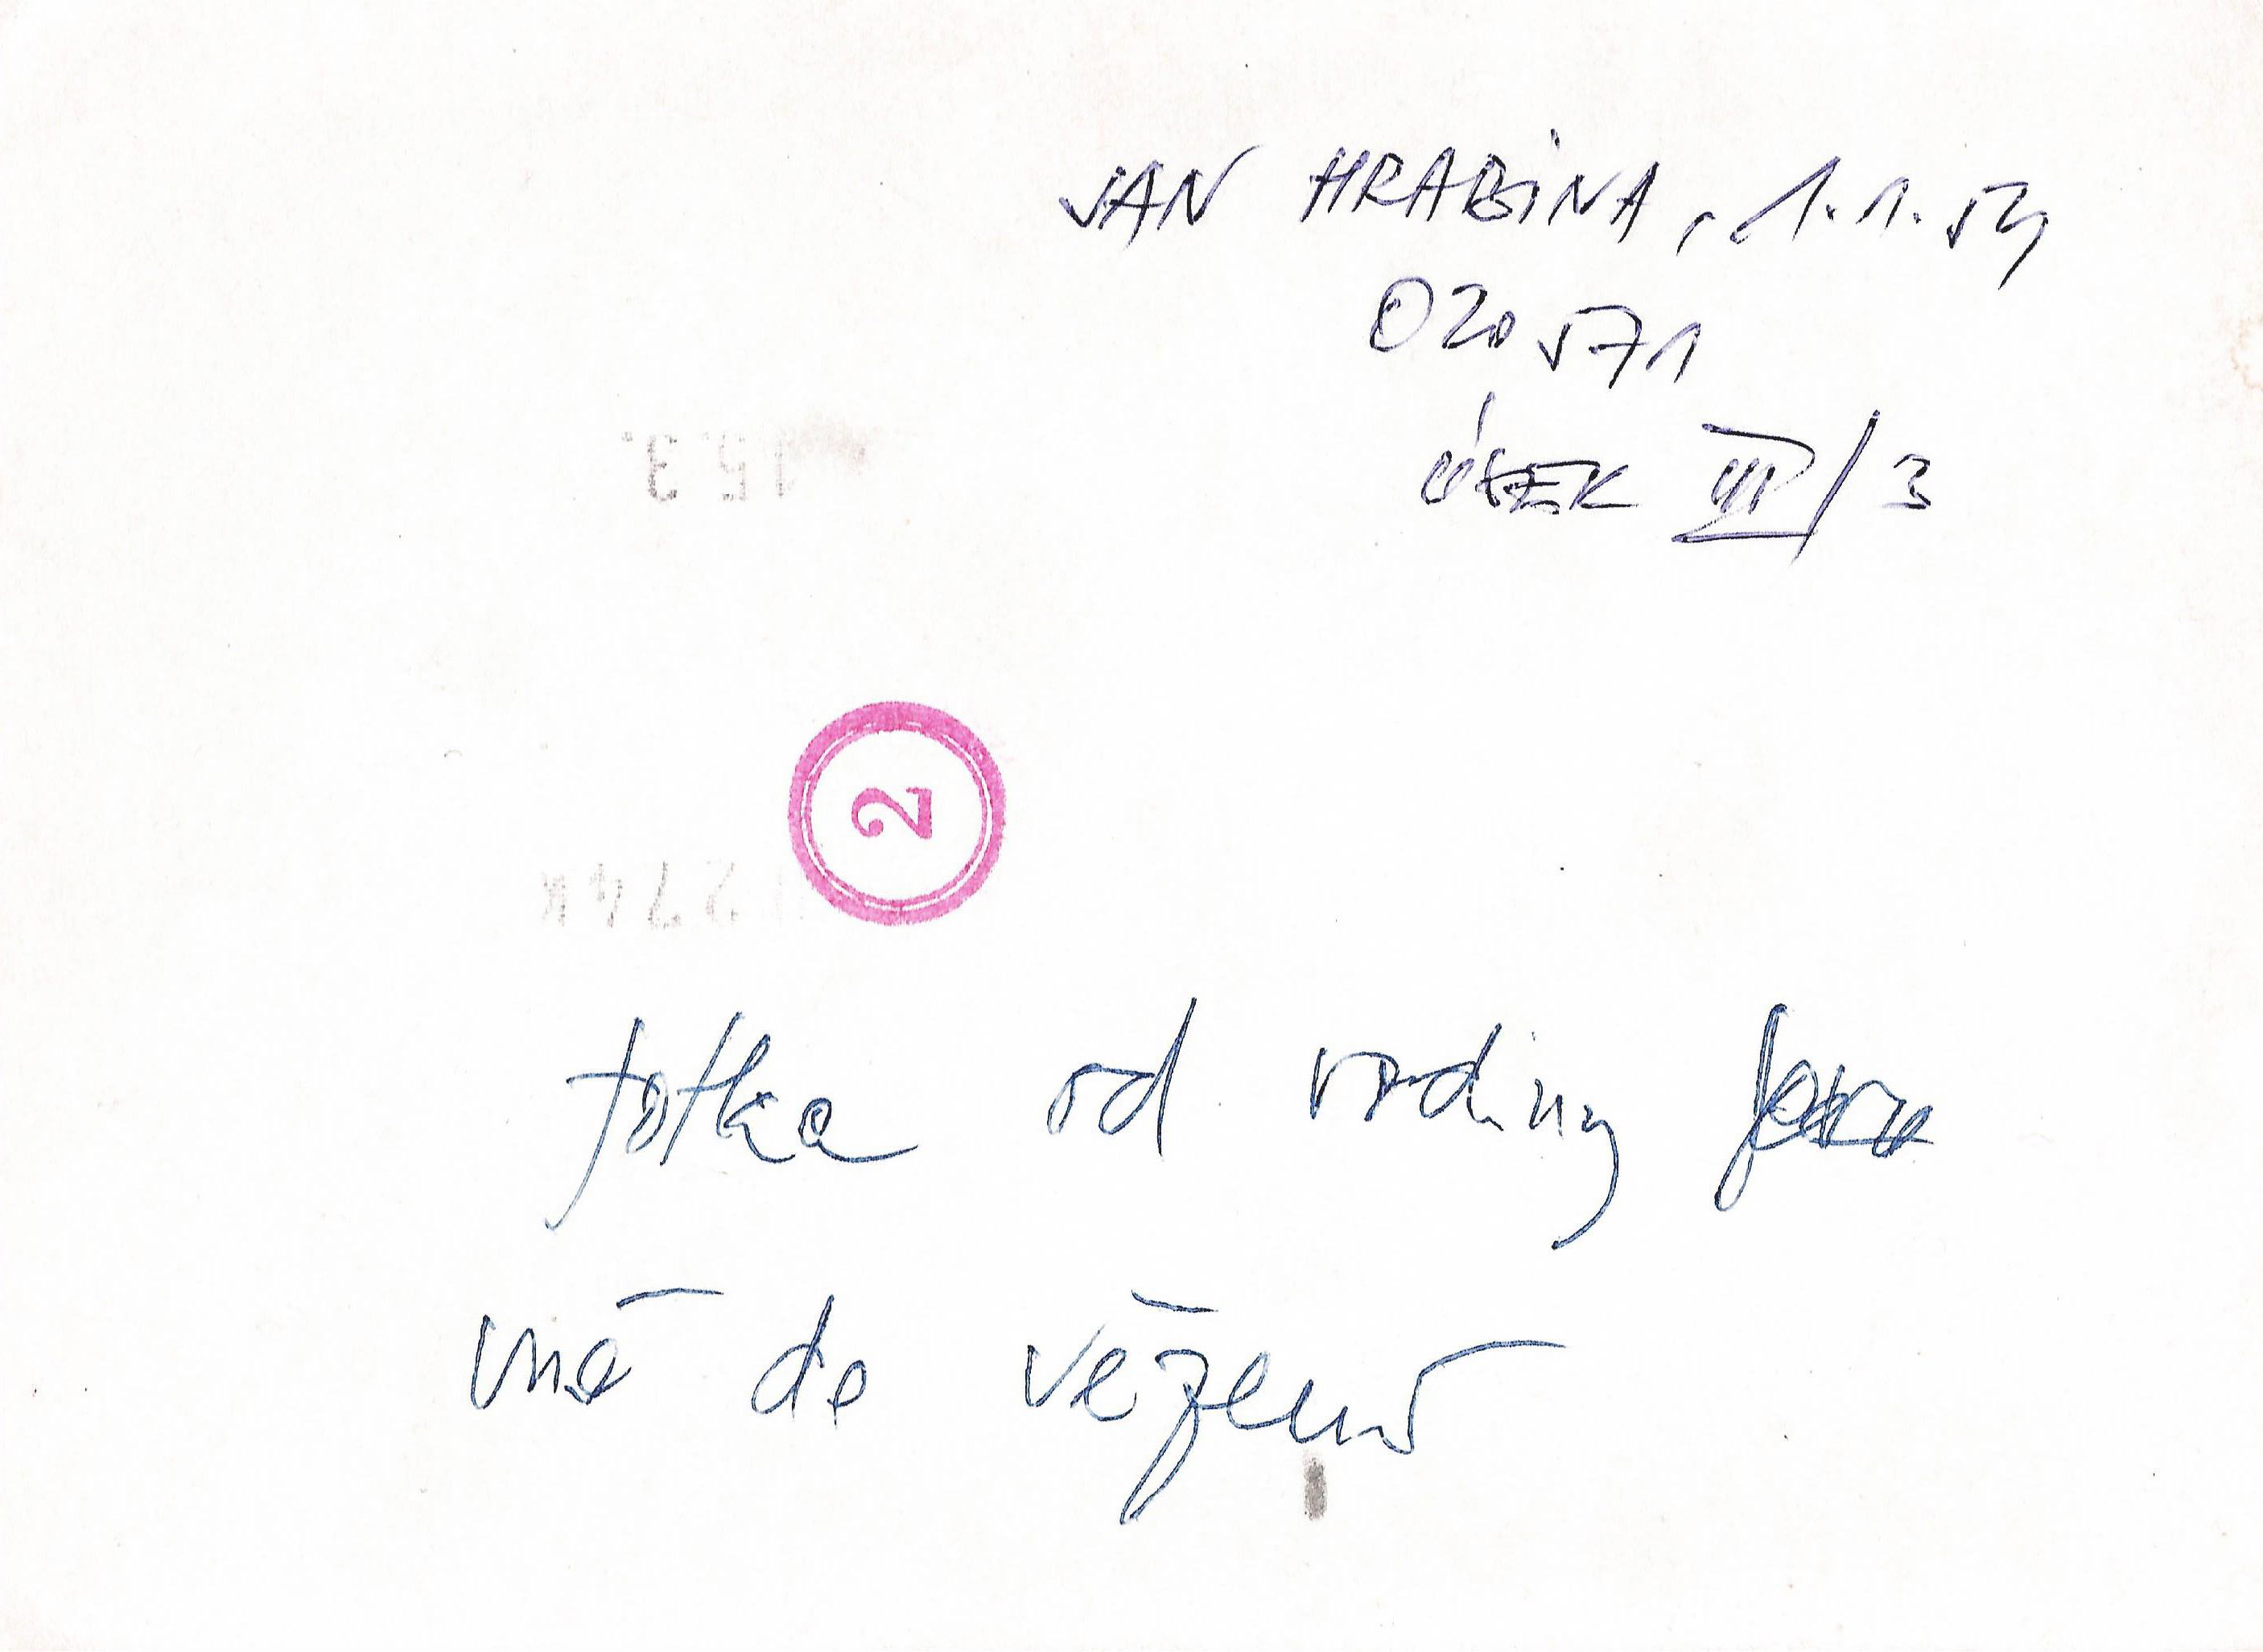 JAN HRABINA, 1.1.54
020571
ÚSEK VI/3
15.3.
2
274
fotka od rodiny pro
mě do vězení